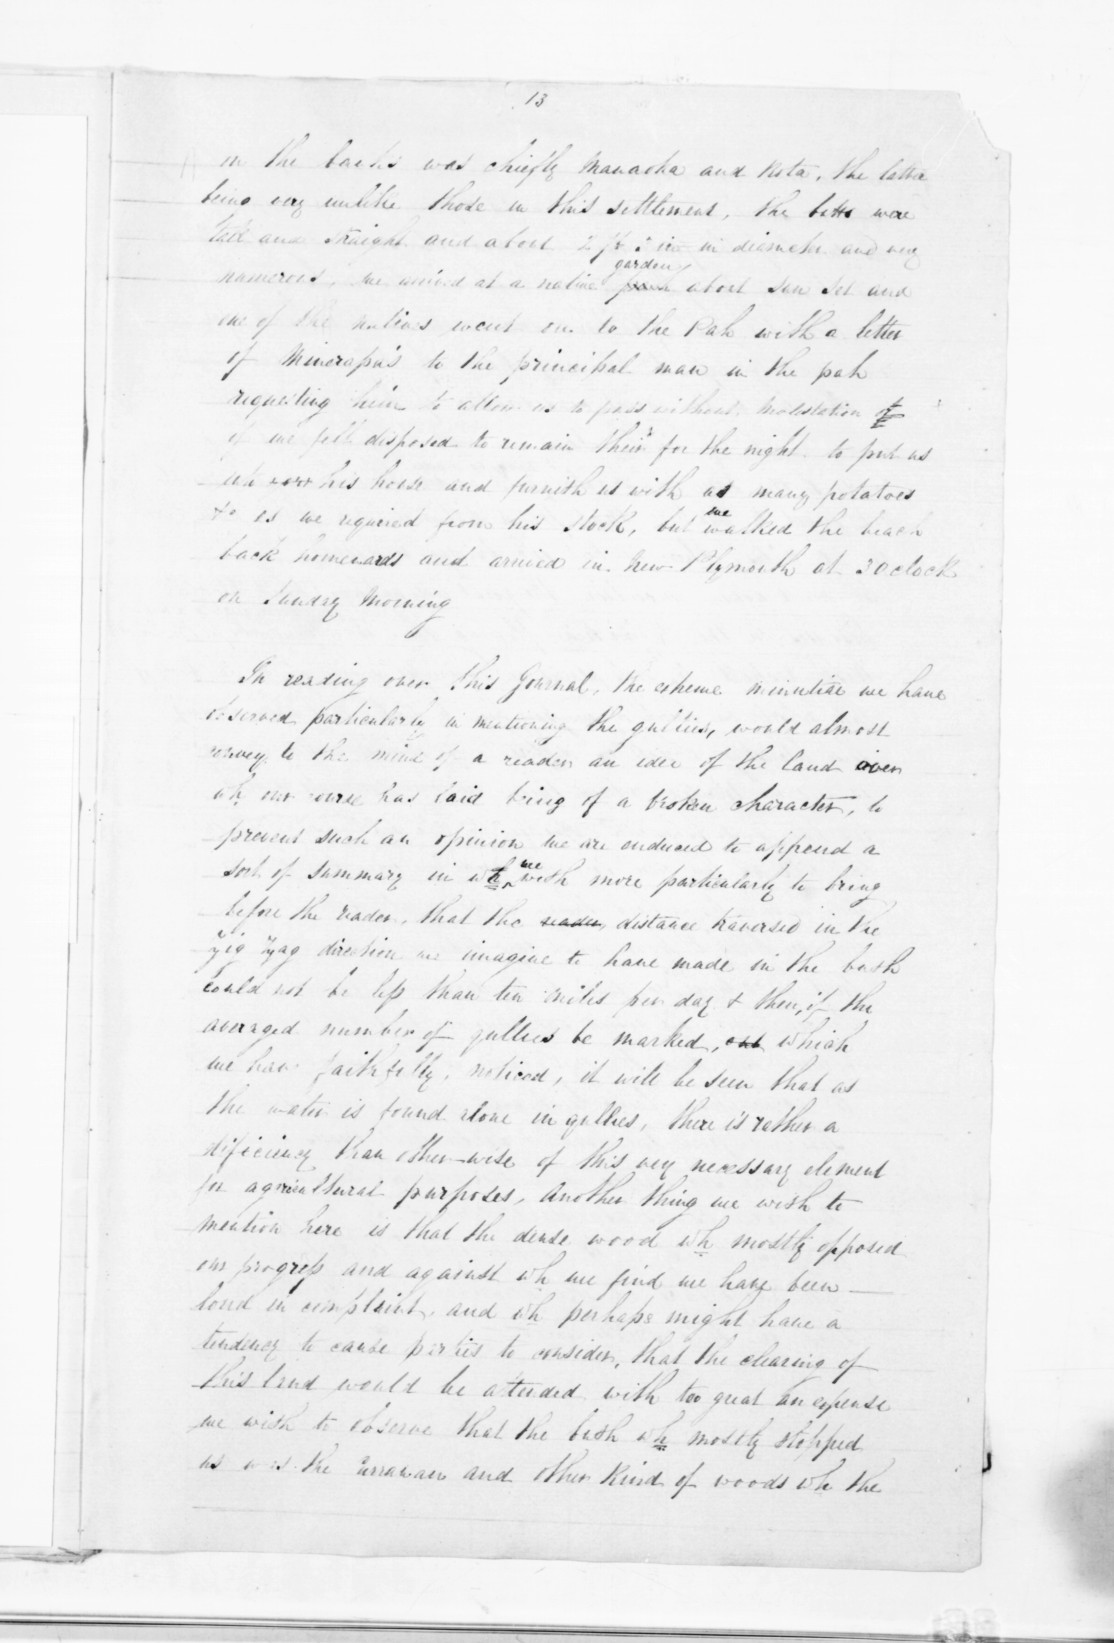 13
in the banks was chiefly Manaoka and Rata, the latter
being very unlike those in this settlement, the butts were
tall and straight and about 2 ft in diameter and very
numerous, we arrived at a native garden about Sun Set and
one of the natives went on to the Pah with a letter
of to the principal man in the pah
requesting him to allow us to pass without Molestation &
if we felt disposed to remain their for the night to put us
into his house and furnish us with as many potatoes
&c as we required from his stock, but we walked the beach
back homewards and arrived in New Plymouth at 3 Oclock
on Sunday Morning
In reading over this Journal, the extreme minutiae we have
observed particularly in mentioning the gullies, would almost
convey to the mind of a reader an idea of the land over
wh our course has laid being of a broken character, to
prevent such an opinion we are enduced to append a
sort of summary in wh we wish more particularly to bring
before the reader, that the reader distance traversed in the
Zig Zag direction we imagine to have made in the bush
could not be less than ten miles per day & then, if the
averaged number of gullies be marked, and which
we have faithfully noticed, it will be seen that as
the water is found alone in gullies, there is rather a
dificiency than other-wise of this very necessary element
for agricultural purposes, Another thing we wish to
mention here is that the dense wood wh mostly opposed
our progress and against wh we find we have been
loud in complaint and wh perhaps might have a
tendency to cause parties to consider, that the clearing of
this land would be attended with too great an expense
we wish to observe that the bush wh mostly stopped
us was the and other kind of woods wh the